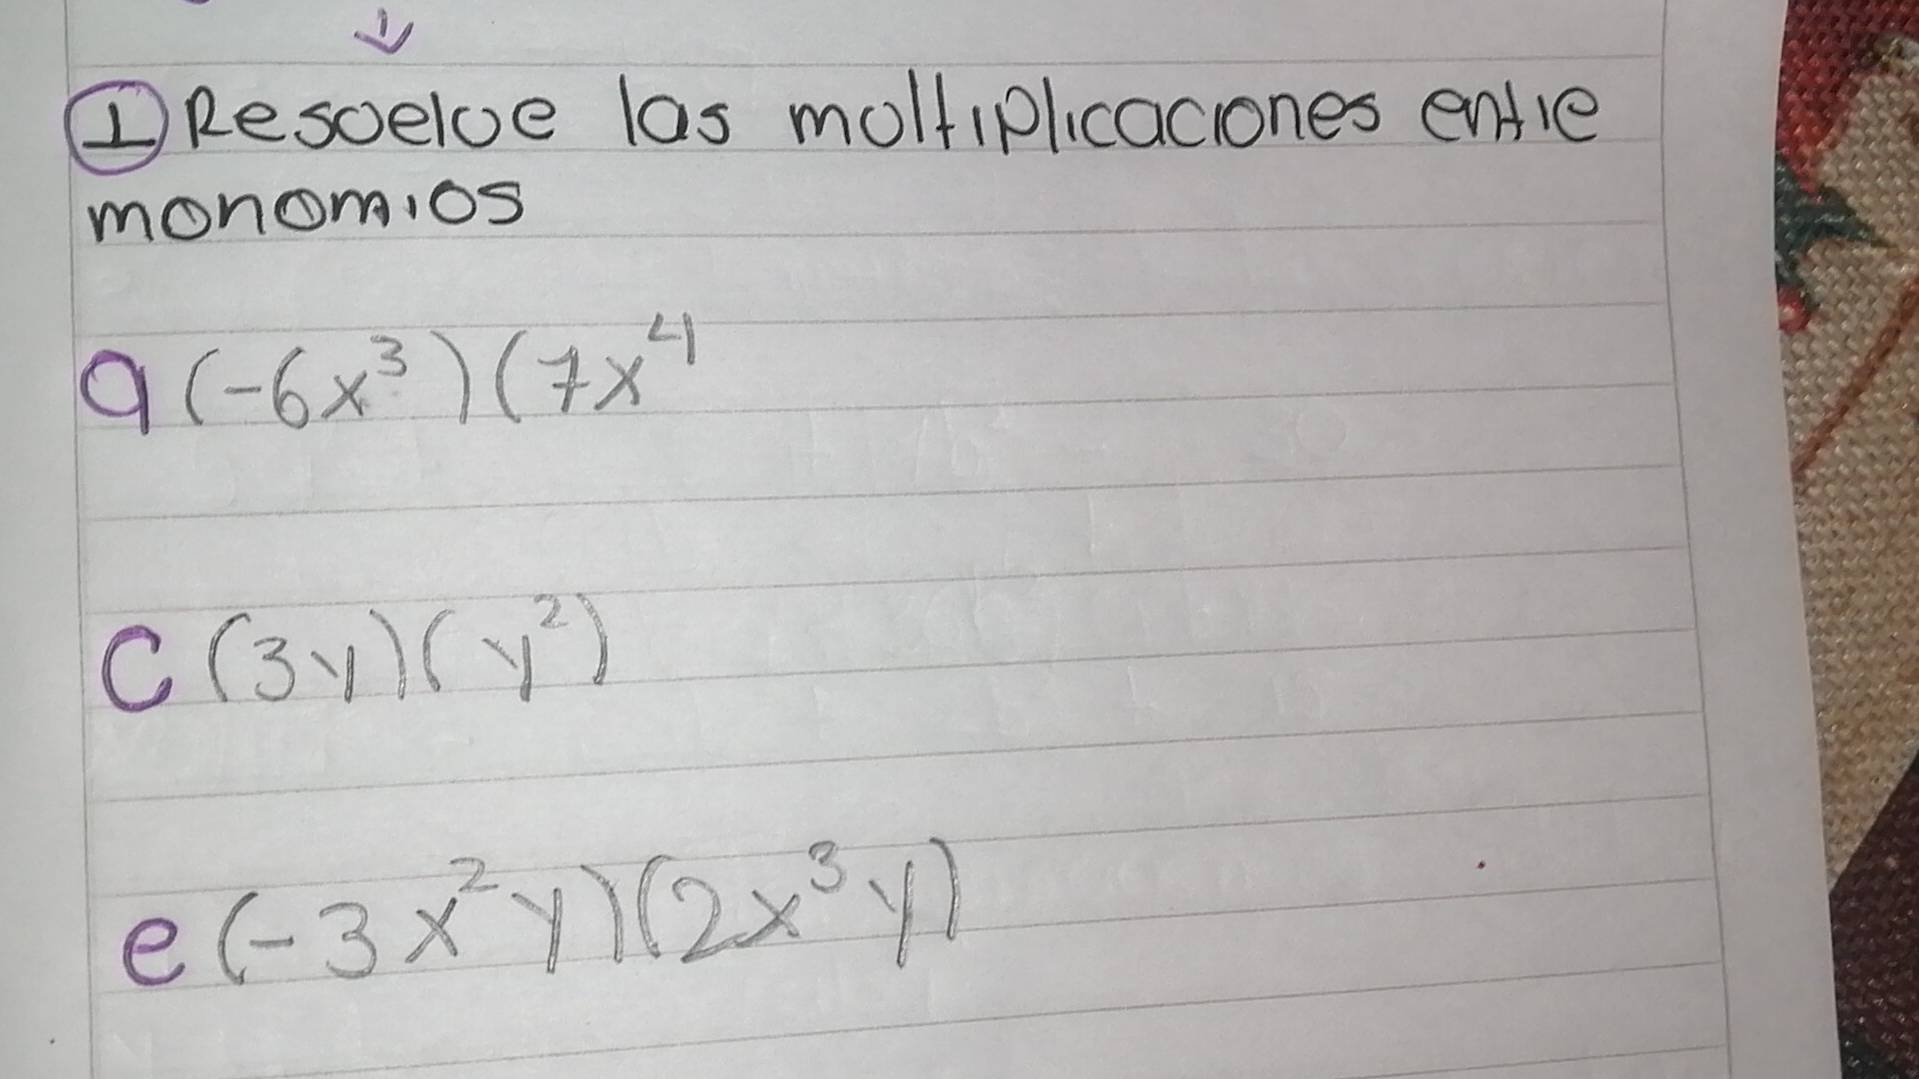 1 Resuelve las multiplicaciones entre
monomios
a (-6x³) (7x⁴
c (3y) (y²)
e (-3x²y) (2x³y)